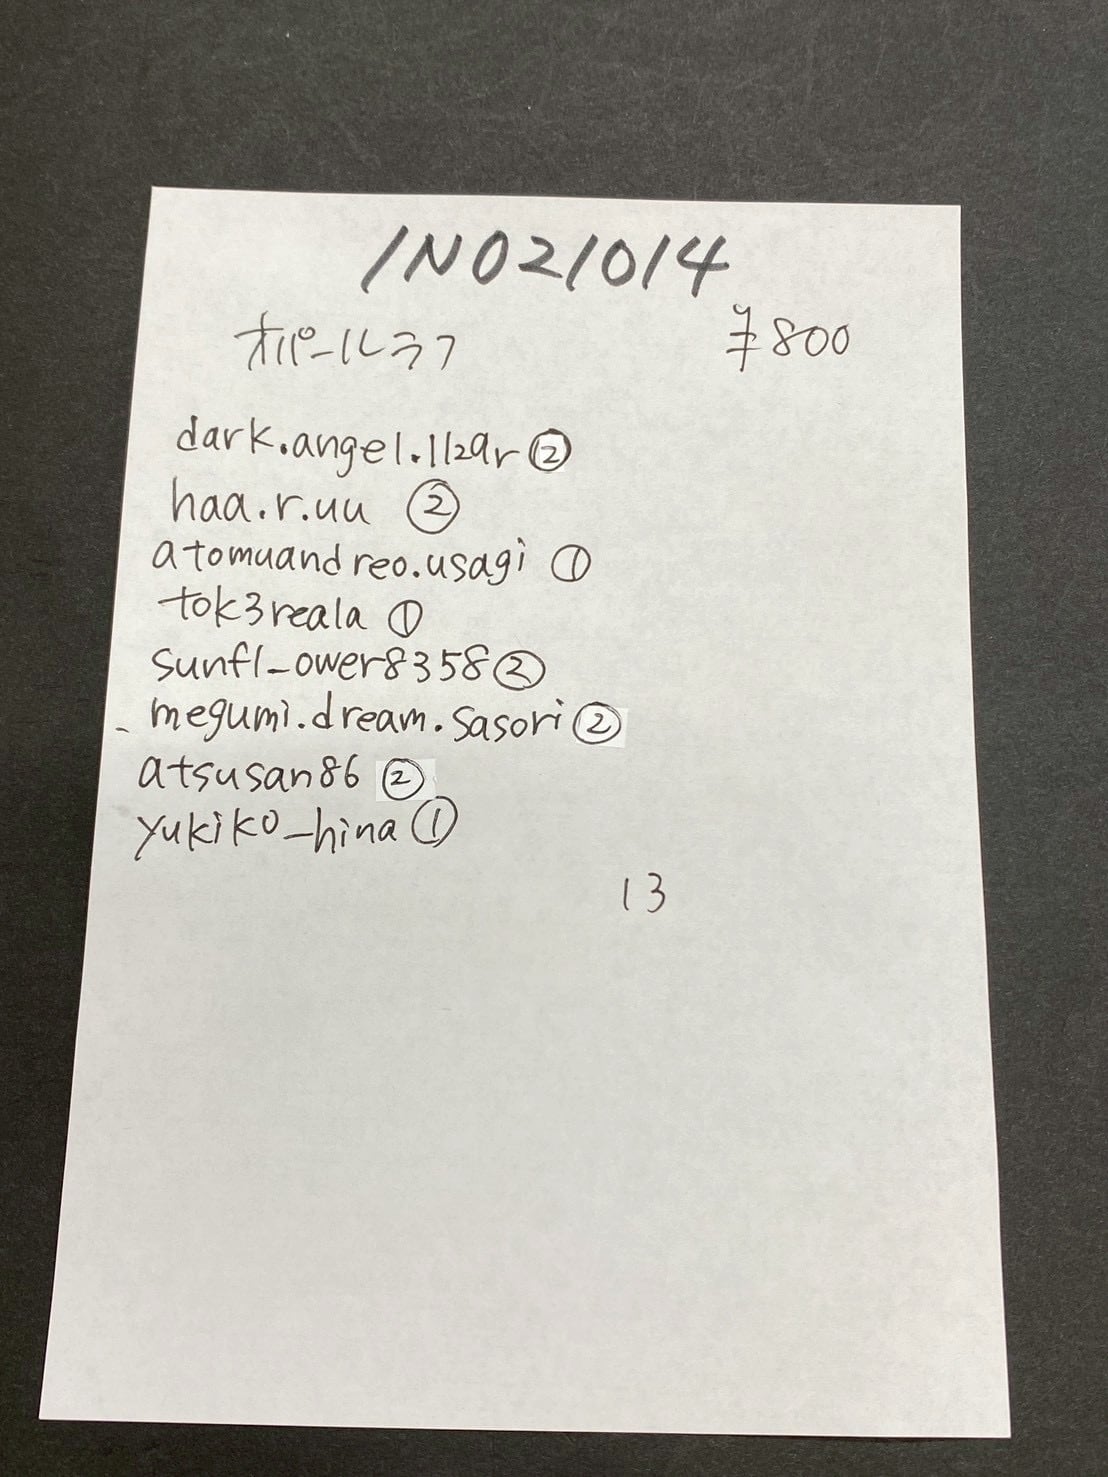 IN021014
オパールラフ ¥800
dark.angel.1129r ②
haa.r.uu ②
atomuandreo.usagi ①
tok3reala ①
sunfl_ower8358 ②
megumi.dream.sasori ②
atsusan86 ②
yukiko_hina ①
13